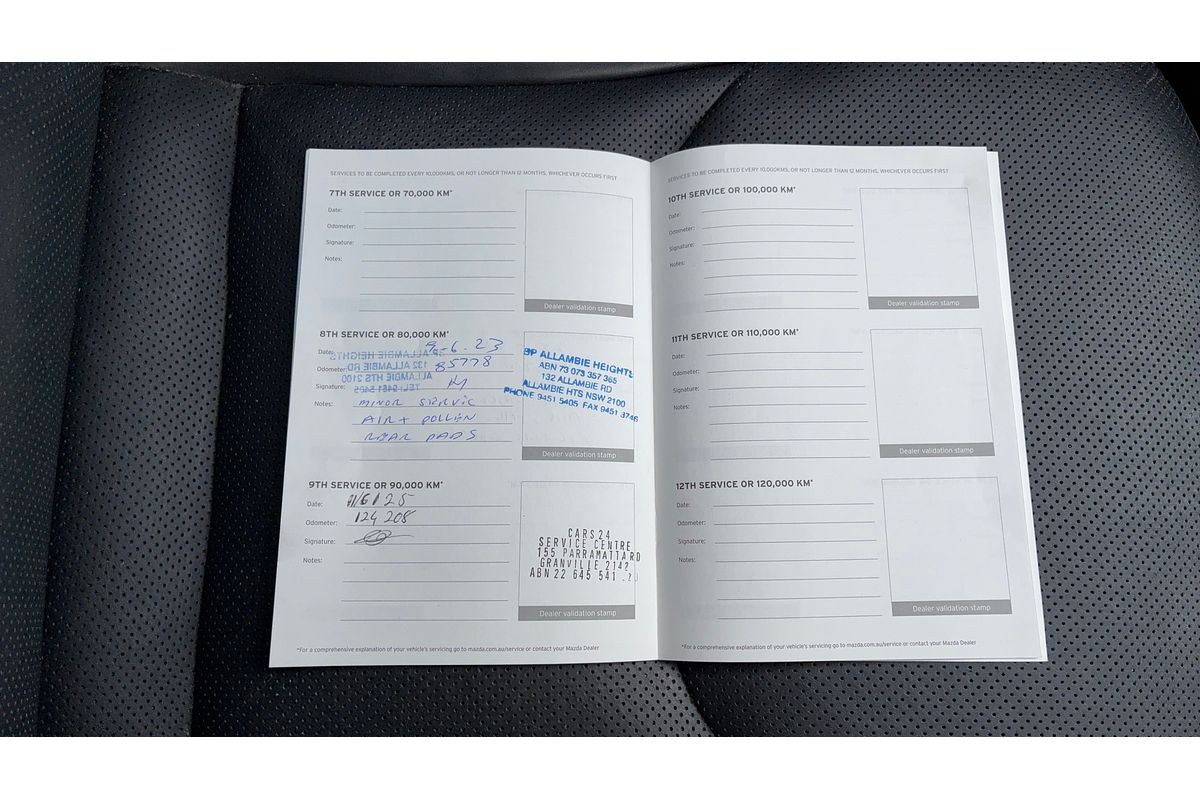 SERVICES TO BE COMPLETED EVERY 10,000KMS, OR NOT LONGER THAN 12 MONTHS, WHICHEVER OCCURS FIRST
7TH SERVICE OR 70,000 KM*
Date:
Odometer:
Signature:
Notes:
Dealer validation stamp
8TH SERVICE OR 80,000 KM*
Date: 9-6-23
Odometer: 85778
Signature:
Notes: MINOR SERVIC
AIR + POLLEN
REAR PADS
BP ALLAMBIE HEIGHTS
132 ALLAMBIE RD
ALLAMBIE HTS 2100
TEL: 9451 5405
BP ALLAMBIE HEIGHTS
ABN 73 073 357 365
132 ALLAMBIE RD
ALLAMBIE HTS NSW 2100
PHONE 9451 5405 FAX 9451 3746
Dealer validation stamp
9TH SERVICE OR 90,000 KM*
Date: /6/25
Odometer: 124 208
Signature:
Notes:
CARS24
SERVICE CENTRE
155 PARRAMATTA RD
GRANVILLE 2142
ABN 22 645 541
Dealer validation stamp
*For a comprehensive explanation of your vehicle's servicing go to mazda.com.au/service or contact your Mazda Dealer
SERVICES TO BE COMPLETED EVERY 10,000KMS, OR NOT LONGER THAN 12 MONTHS, WHICHEVER OCCURS FIRST
10TH SERVICE OR 100,000 KM*
Date:
Odometer:
Signature:
Notes:
Dealer validation stamp
11TH SERVICE OR 110,000 KM*
Date:
Odometer:
Signature:
Notes:
Dealer validation stamp
12TH SERVICE OR 120,000 KM*
Date:
Odometer:
Signature:
Notes:
Dealer validation stamp
*For a comprehensive explanation of your vehicle's servicing go to mazda.com.au/service or contact your Mazda Dealer